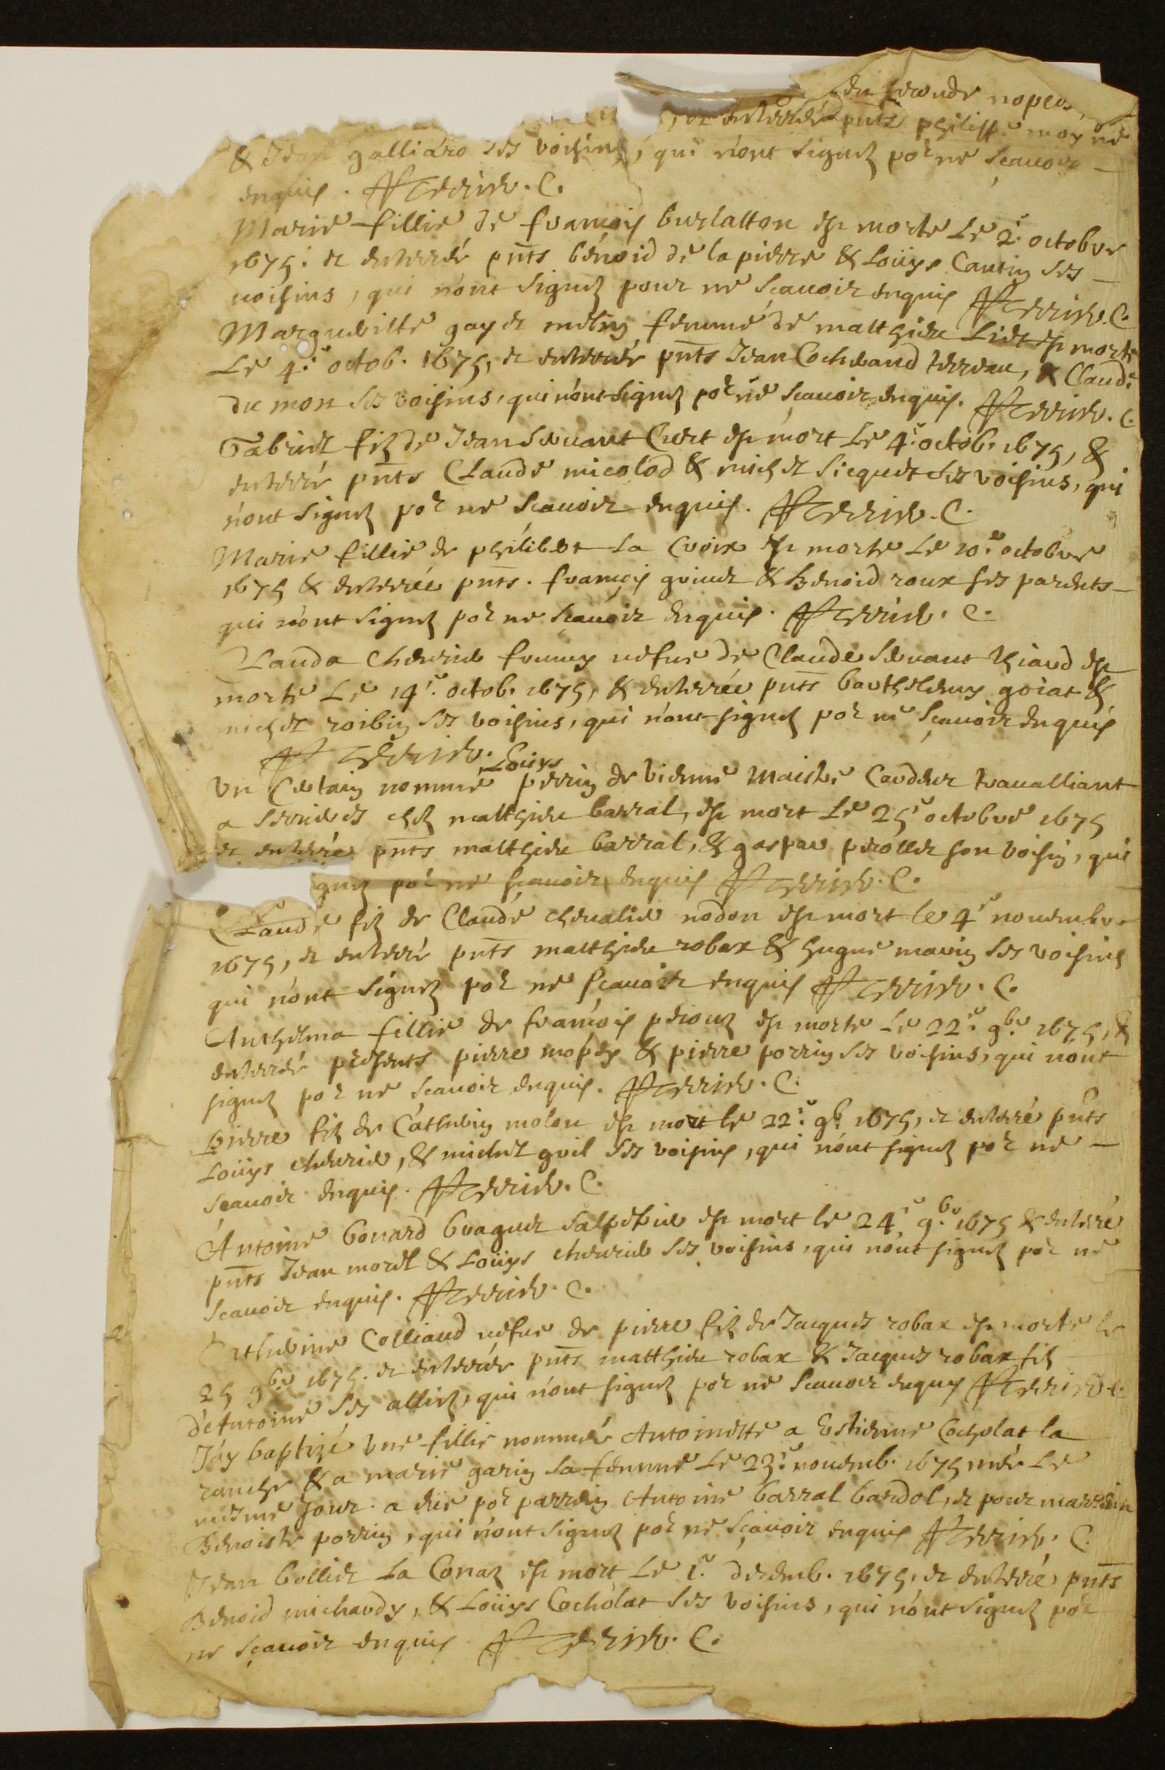 en seconde nopces
& enterré pñts philippe moyne
& Jean galliard ses voisins, qui n'ont signez poꝛ ne sçauoir
enquis. Perrier. C.
Marie fillie de françois burlatton est morte Le 2.e octobre
1675. et enterrée pñts bénoid de la pierre & Loüys Cautin ses
uoisins, qui n'ont signez pour ne sçauoir enquis Perrier. C.
Marguerite gay et femme de matthieu est morte
Le 4.e octob. 1675, et enterrée pñts Jean Cocheand & Claude
du mon ses voisins, qui n'ont signez poꝛ ne sçauoir enquis. Perrier. C.
Gabriel filz de Jean Seruant Curt est mort Le 4.e octob. 1675, &
enterré pñts Claude micolod & michel sicquet ses voisins, qui
n'ont signez poꝛ ne sçauoir enquis. Perrier. C.
Marie fillie de philibert La Croix est morte Le 10.e octobre
1675 & enterrée pñts. françois guinet & Benoid roux ses parents
qui n'ont signez poꝛ ne sçauoir enquis. Perrier. C.
Clauda Cheurier uefue de Claude Seruant est
morte Le 14.e octob. 1675, & enterrée pñts barthelemy goiat &
michel roibin ses voisins, qui n'ont signez poꝛ ne sçauoir enquis
Perrier.
Un Certain nommé Loüys perrin de vienne Maistre trauailliant
a chez matthieu barral, est mort Le 25.e octobre 1675
et enterré pñts matthieu barral, & gaspar perollet son voisin, qui
signez poꝛ ne sçauoir enquis Perrier. C.
Claude filz de Claude cheualier nodon est mort le 4.e nouembre
1675, et enterré pñts matthieu robax & hugue marin ses voisins
qui n'ont signez poꝛ ne sçauoir enquis Perrier. C.
Anthelma fillie de françois periouz est morte Le 22.e 9.bre 1675, &
enterrée présents pierre & pierre perrin ses voisins, qui n'ont
signez poꝛ ne sçauoir enquis. Perrier. C.
Pierre filz de Catherin molon est mort le 22.e 9.b 1675, et enterré pñts
Loüys cheurier, & michel goil ses voisins, qui n'ont signez poꝛ ne
sçauoir enquis. Perrier. C.
Antoine bonard braguer est mort le 24.e 9.bre 1675 & enterré
pñts Jean morel & Loüys cheurier ses voisins, qui n'ont signez poꝛ ne
sçauoir enquis. Perrier. C.
Catherine Colliaud uefue de pierre filz de Jacques robax est morte le
25 9.bre 1675. et enterrée pñts matthieu robax & Jacques robax filz
d'Antoine ses alliez, qui n'ont signez poꝛ ne sçauoir enquis Perrier C.
J'ay baptizé une fillie nommée Antoinette a Estienne Cocholat la
ranche & a marie garin sa femme Le 23.e nouemb. 1675 née Le
mesme jour. a élu poꝛ parrein Antoine barral bardol, et pour marreine
Benoiste perrin, qui n'ont signez poꝛ ne sçauoir enquis Perrier. C.
Jean bollier La Conaz est mort Le 1.e decemb. 1675, et enterré, pñts
Benoid michaudy, & Loüys Cocholat ses voisins, qui n'ont signez poꝛ
ne sçauoir enquis. Perrier. C.